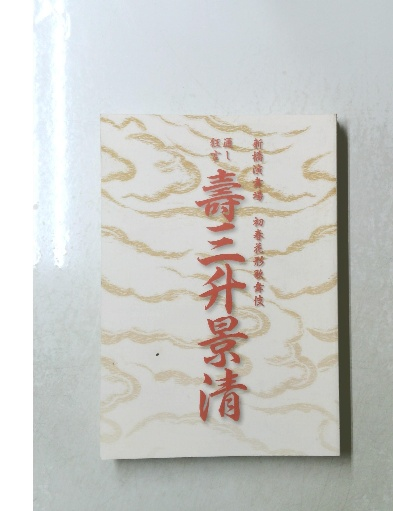 新橋演舞場 初春花形歌舞伎
通し
狂言
壽三升景清